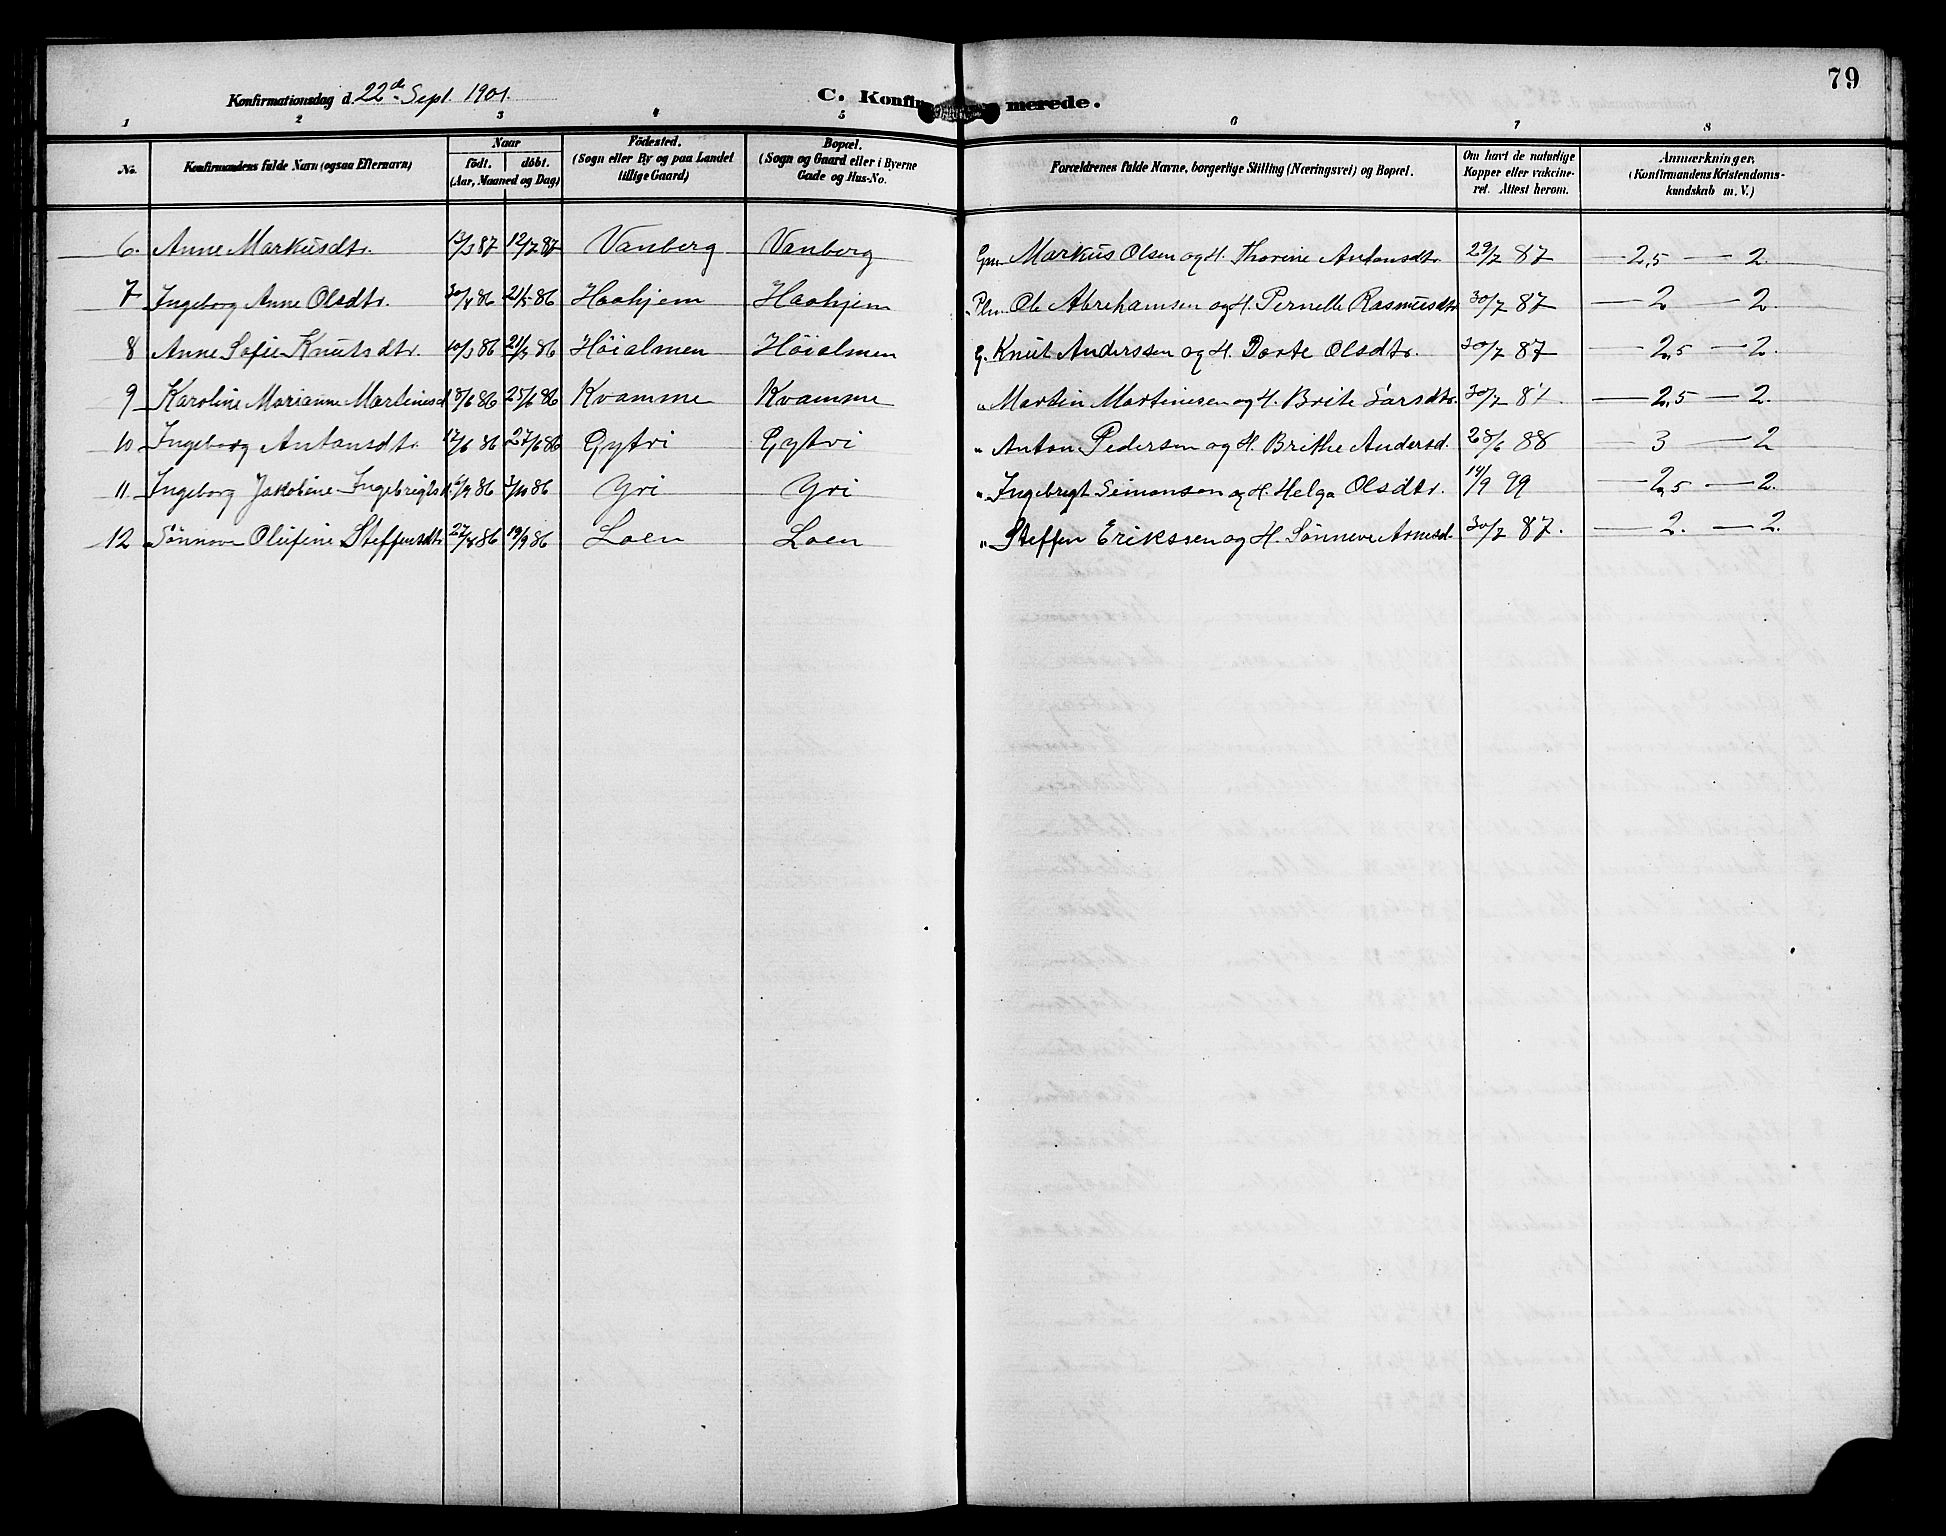 79
Konfirmationsdag d. 22de Sept. 1901. C. Konfirmerede.
1 2 3 4 5 6 7 8
No. Konfirmandens fulde Navn (ogsaa Efternavn) Naar födt. döbt. (Aar, Maaned og Dag) Födested. (Sogn eller By og paa Landet tillige Gaard) Bopæl. (Sogn og Gaard eller i Byerne Gade og Hus-No. Forældrenes fulde Navne, borgerlige Stilling (Næringsvei) og Bopæl. Om havt de naturlige Kopper eller vakcineret. Attest herom. Anmærkninger, (Konfirmandens Kristendomskundskab m. V.)
6. Anne Markusdtr. 13/3 87 12/7 87 Vanberg Vanberg Gm Markus Olsen og H. Thorine Antonsdtr. 29/7 87 — 2,5 — 2.
7 Ingeborg Anne Olsdtr. 30/4 86 21/5 86 Haahjem Haahjem Plm Ole Abrehamsen og H. Pernelle Rasmusdtr 30/7 87 — 2 — 2.
8 Anne Sofie Knutsdtr. 10/3 86 21/3 86 Höialmen Höialmen G. Knut Anderssen og H. Dorte Olsdtr. 30/7 87 — 2,5 — 2.
9 Karoline Marianne Martinusd 18/6 86 25/6 86 Kvamme Kvamme " Martin Martinusen og H. Brite Larsdtr. 30/7 87 — 2,5 — 2.
10 Ingeborg Antonsdtr. 17/6 86 27/6 86 Gytri Gytri " Anton Pedersen og H. Brithe Andersd. 28/6 88 — 3 — 2
11. Ingeborg Jakobine Ingebrigtsd. 6/9 86 3/10 86 Yri Yri " Ingebrigt Simonsen og H. Helga Olsdtr. 14/9 99 — 2,5 — 2.
12 Sönnove Olufine Steffensdtr 27/8 86 19/9 86 Loen Loen " Steffen Erikssen og H. Sönneve Arnesd. 30/7 87. — 2. — 2.